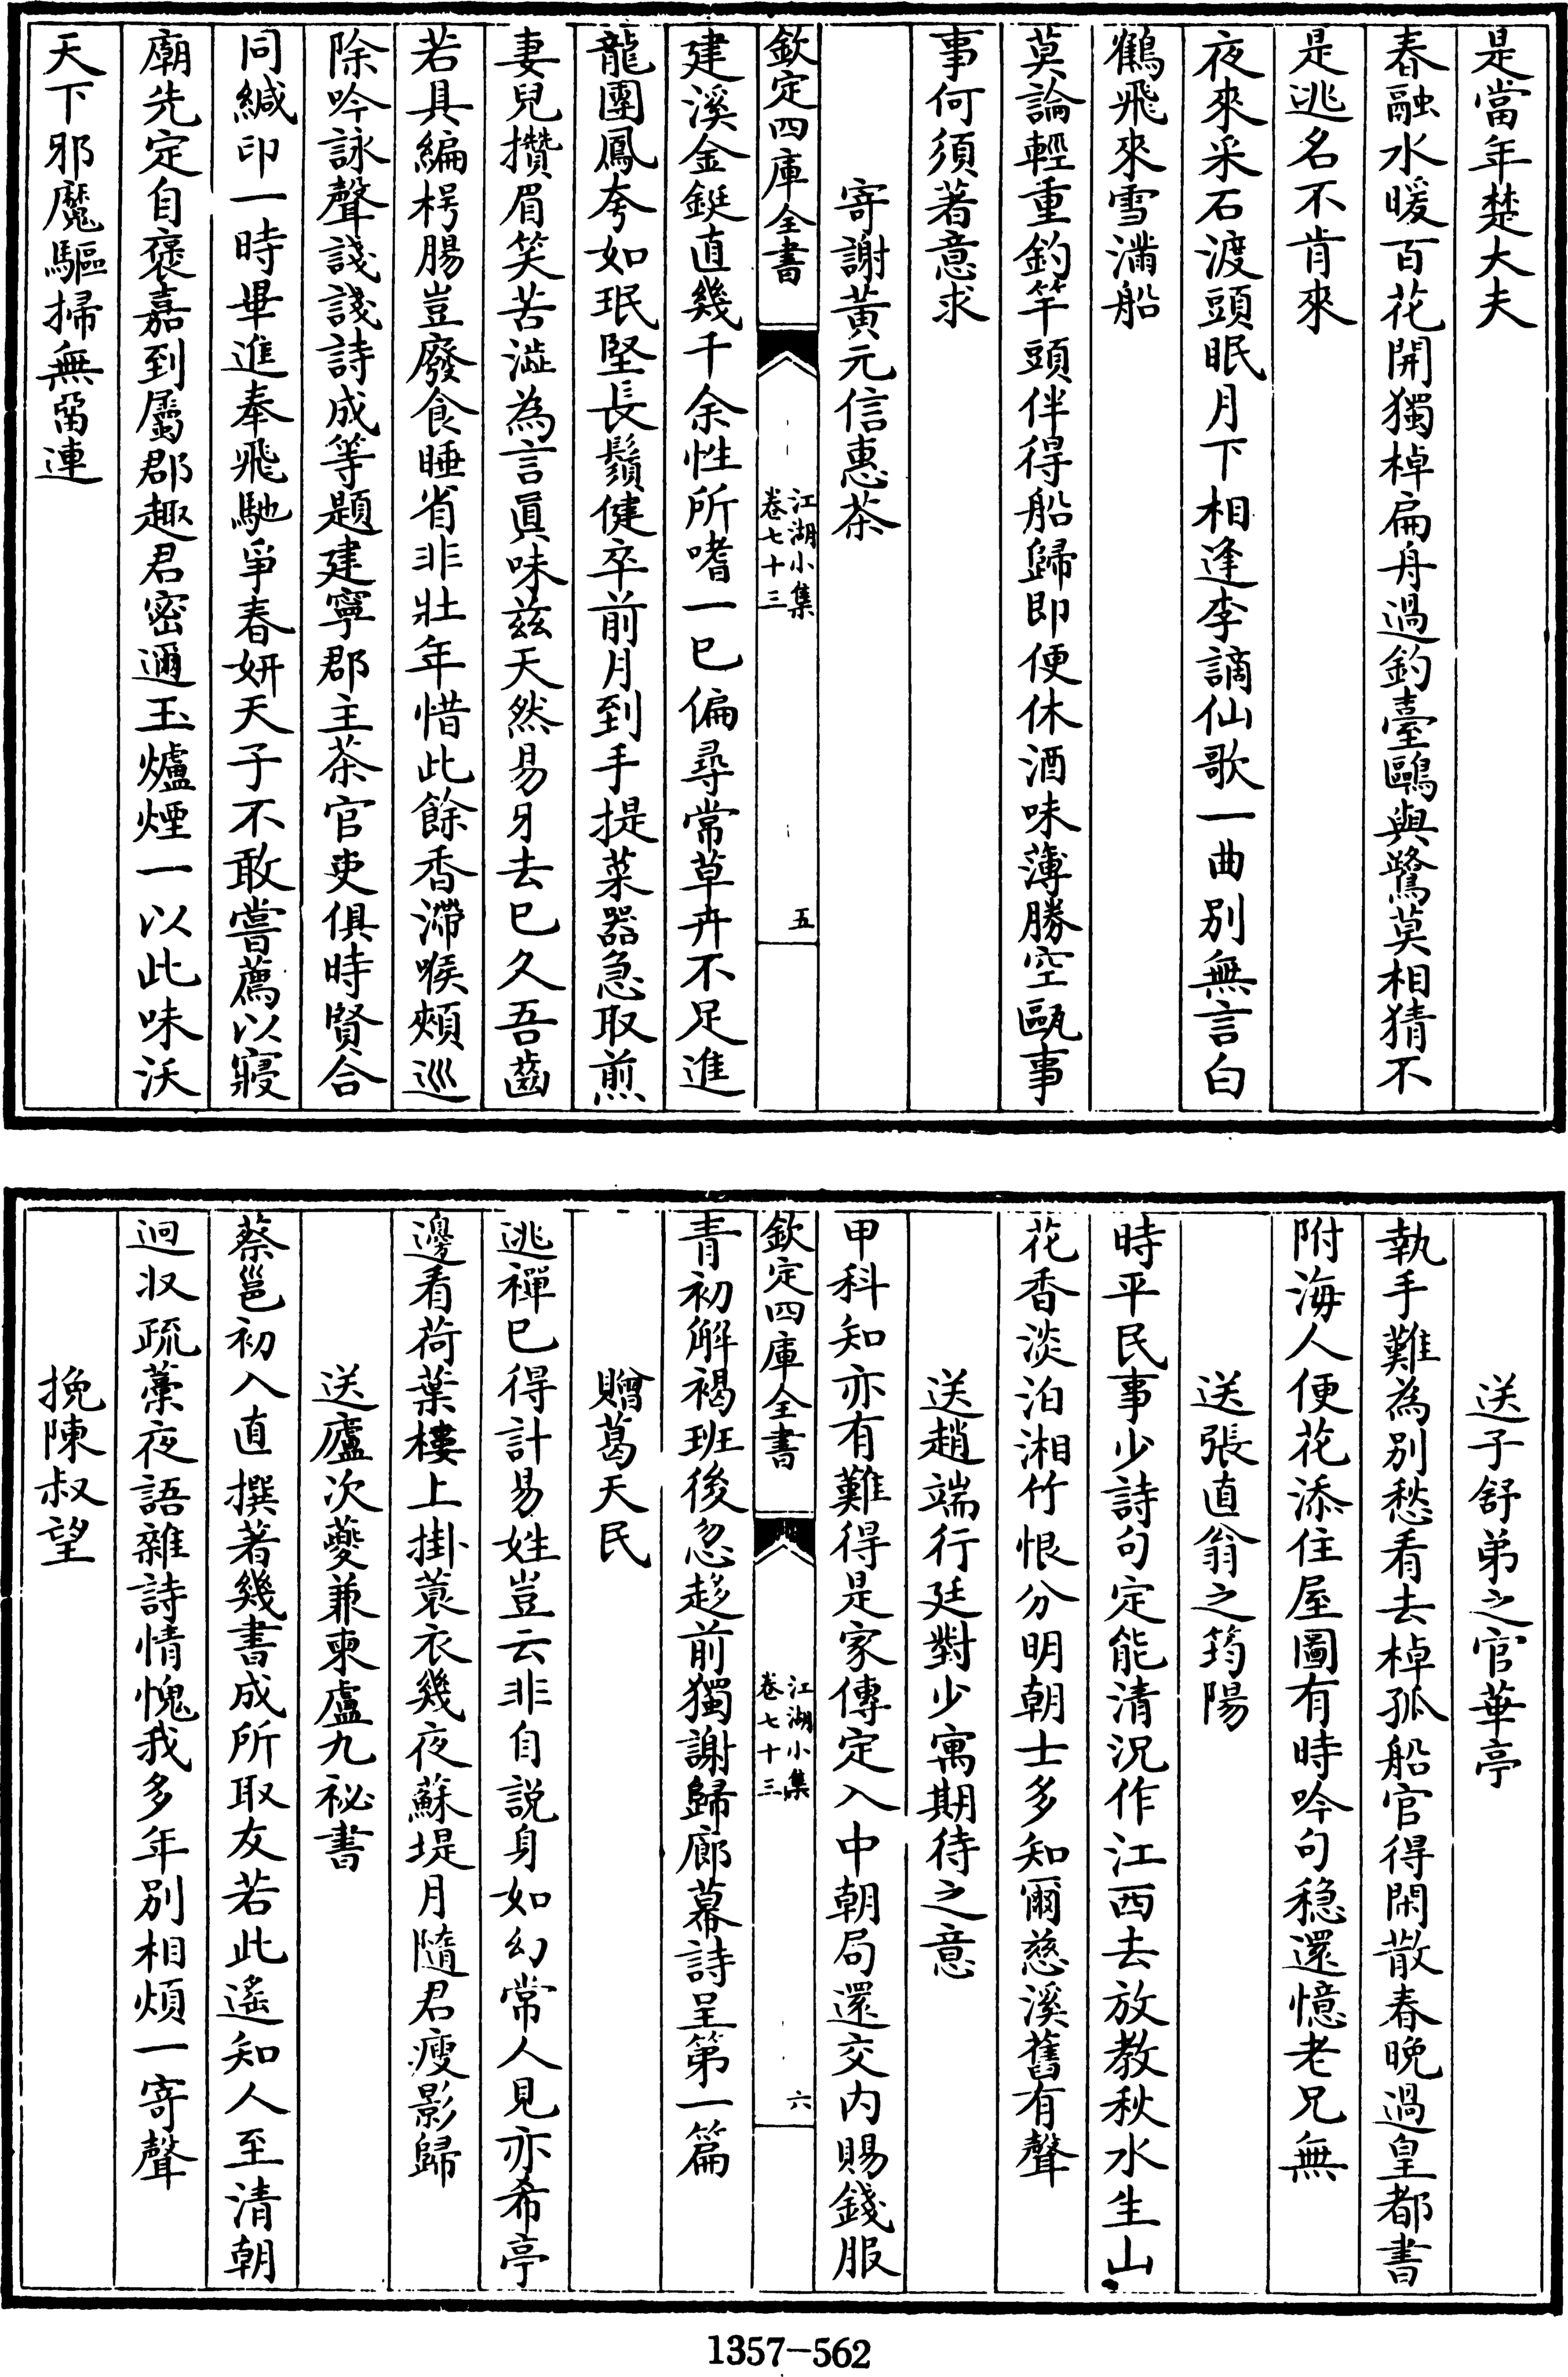 是當年楚大夫
春融水暖百花開獨棹扁舟過釣臺鷗與鷺莫相猜不
是逃名不肯來
夜來采石渡頭眠月下相逢李謫仙歌一曲别無言白
鶴飛來雪滿船
莫論輕重釣竿頭伴得船歸即便休酒味薄勝空甌事
事何須著意求
寄謝黃元信惠茶
欽定四庫全書
江湖小集
卷七十三
五
建溪金鋌直幾千余性所嗜一已偏尋常草卉不足進
龍團鳳夸如珉堅長鬚健卒前月到手提菜器急取煎
妻兒攢眉笑苦澁為言眞味兹天然易牙去已久吾齒
若具編枵腸豈廢食睡省非壯年惜此餘香滯喉頰巡
除吟詠聲諓諓詩成等題建寧郡主茶官吏俱時賢合
同緘印一時畢進奉飛馳爭春妍天子不敢嘗薦以寢
廟先定自褒嘉到屬郡趣君密邇玉爐煙一以此味沃
天下邪魔驅掃無畱連
送子舒弟之官華亭
執手難為别愁看去棹孤船官得閑散春晚過皇都書
附海人便花添住屋圖有時吟句穏還憶老兄無
送張直翁之筠陽
時平民事少詩句定能清況作江西去放教秋水生山
花香淡泊湘竹恨分明朝士多知爾慈溪舊有聲
送趙端行廷對少寓期待之意
甲科知亦有難得是家傳定入中朝局還交内賜錢服
欽定四庫全書
江湖小集
卷七十三
六
青初解褐班後忽趍前獨謝歸廊幕詩呈第一篇
贈葛天民
逃禪已得計易姓豈云非自説身如幻常人見亦希亭
邊看荷葉樓上掛蓑衣幾夜蘇堤月隨君瘦影歸
送廬次夔兼柬盧九祕書
蔡邕初入直撰著幾書成所取友若此遙知人至清朝
迴收疏藁夜語雜詩情愧我多年别相煩一寄聲
挽陳叔望
1357-562